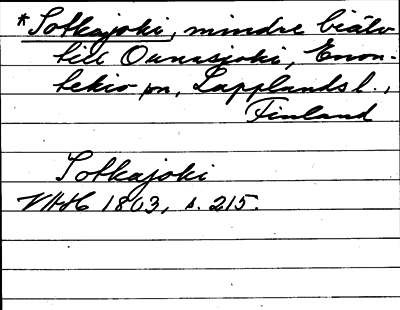 *Sotkajoki, mindre biälv
till Ounasjoki, Enon-
tekis sn, Lapplands l.,
Finland
Sotkajoki
VAH 1803, s. 215.